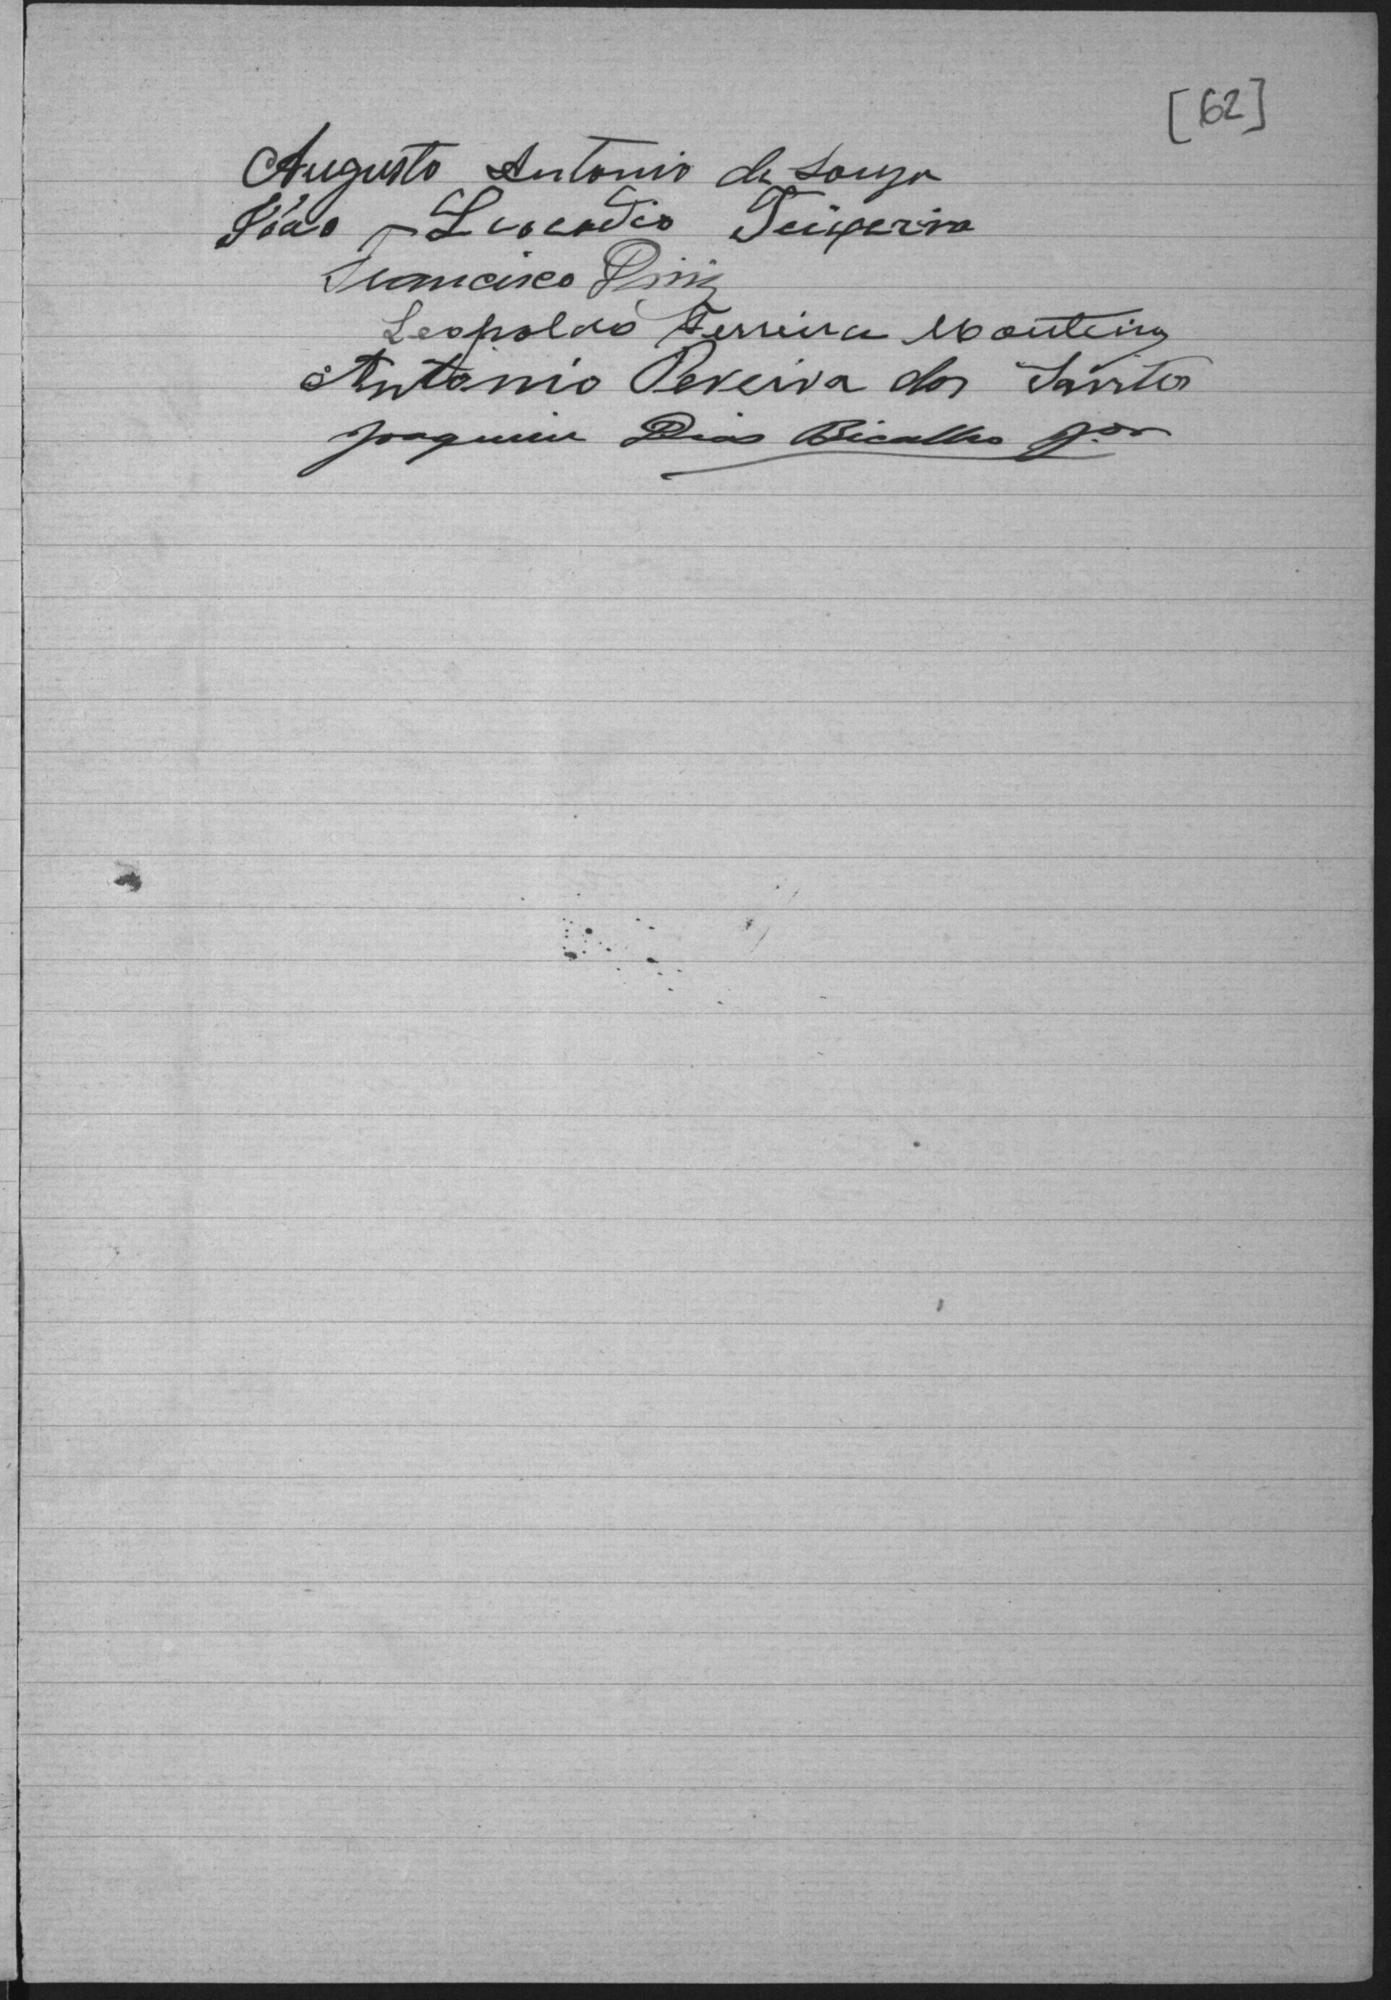 [62]
Augusto Antonio de Souza
João Leocadio Teixeira
Francisco Diniz
Leopoldo Ferreira Monteiro
Antonio Pereira dos Santos
Joaquim Dias Bicalho Jor